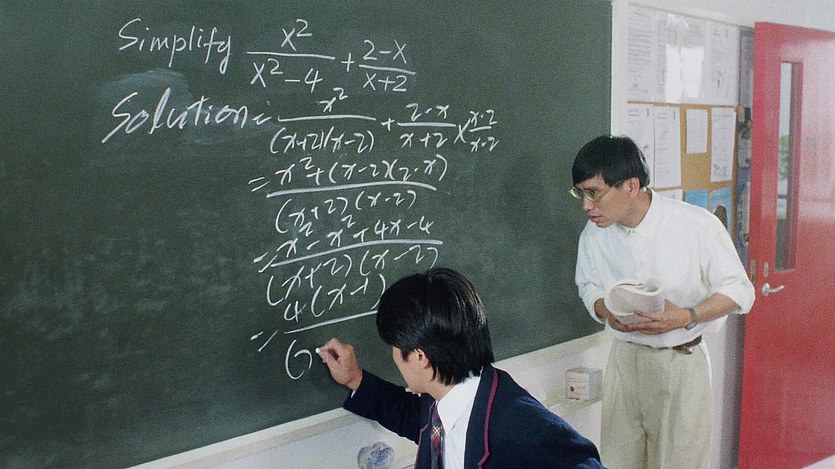 Simplify x²/(x²-4) + (2-x)/(x+2)
Solution: x²/((x+2)(x-2)) + (2-x)/(x+2) × (x-2)/(x-2)
= (x²+(x-2)(2-x))/((x+2)(x-2))
= (x²-x²+4x-4)/((x+2)(x-2))
= 4(x-1)/(